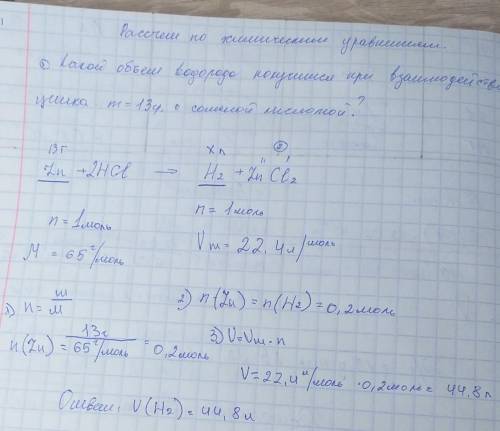 Рассчет по химическим уравнениям.
Какой объем водорода получится при взаимодейств
цинка m = 13г. с соляной кислотой?
13г xл
Zn + 2HCl → H₂ + Zn Cl₂
n = 1моль n = 1моль
M = 65 г/моль Vm = 22,4 л/моль
1) n = m/M 2) n(Zn) = n(H₂) = 0,2моль
n(Zn) = 13г/65 г/моль = 0,2моль 3) V = Vm · n
V = 22,4 л/моль · 0,2моль = 44,8 л
Ответ: V(H₂) = 44,8 л